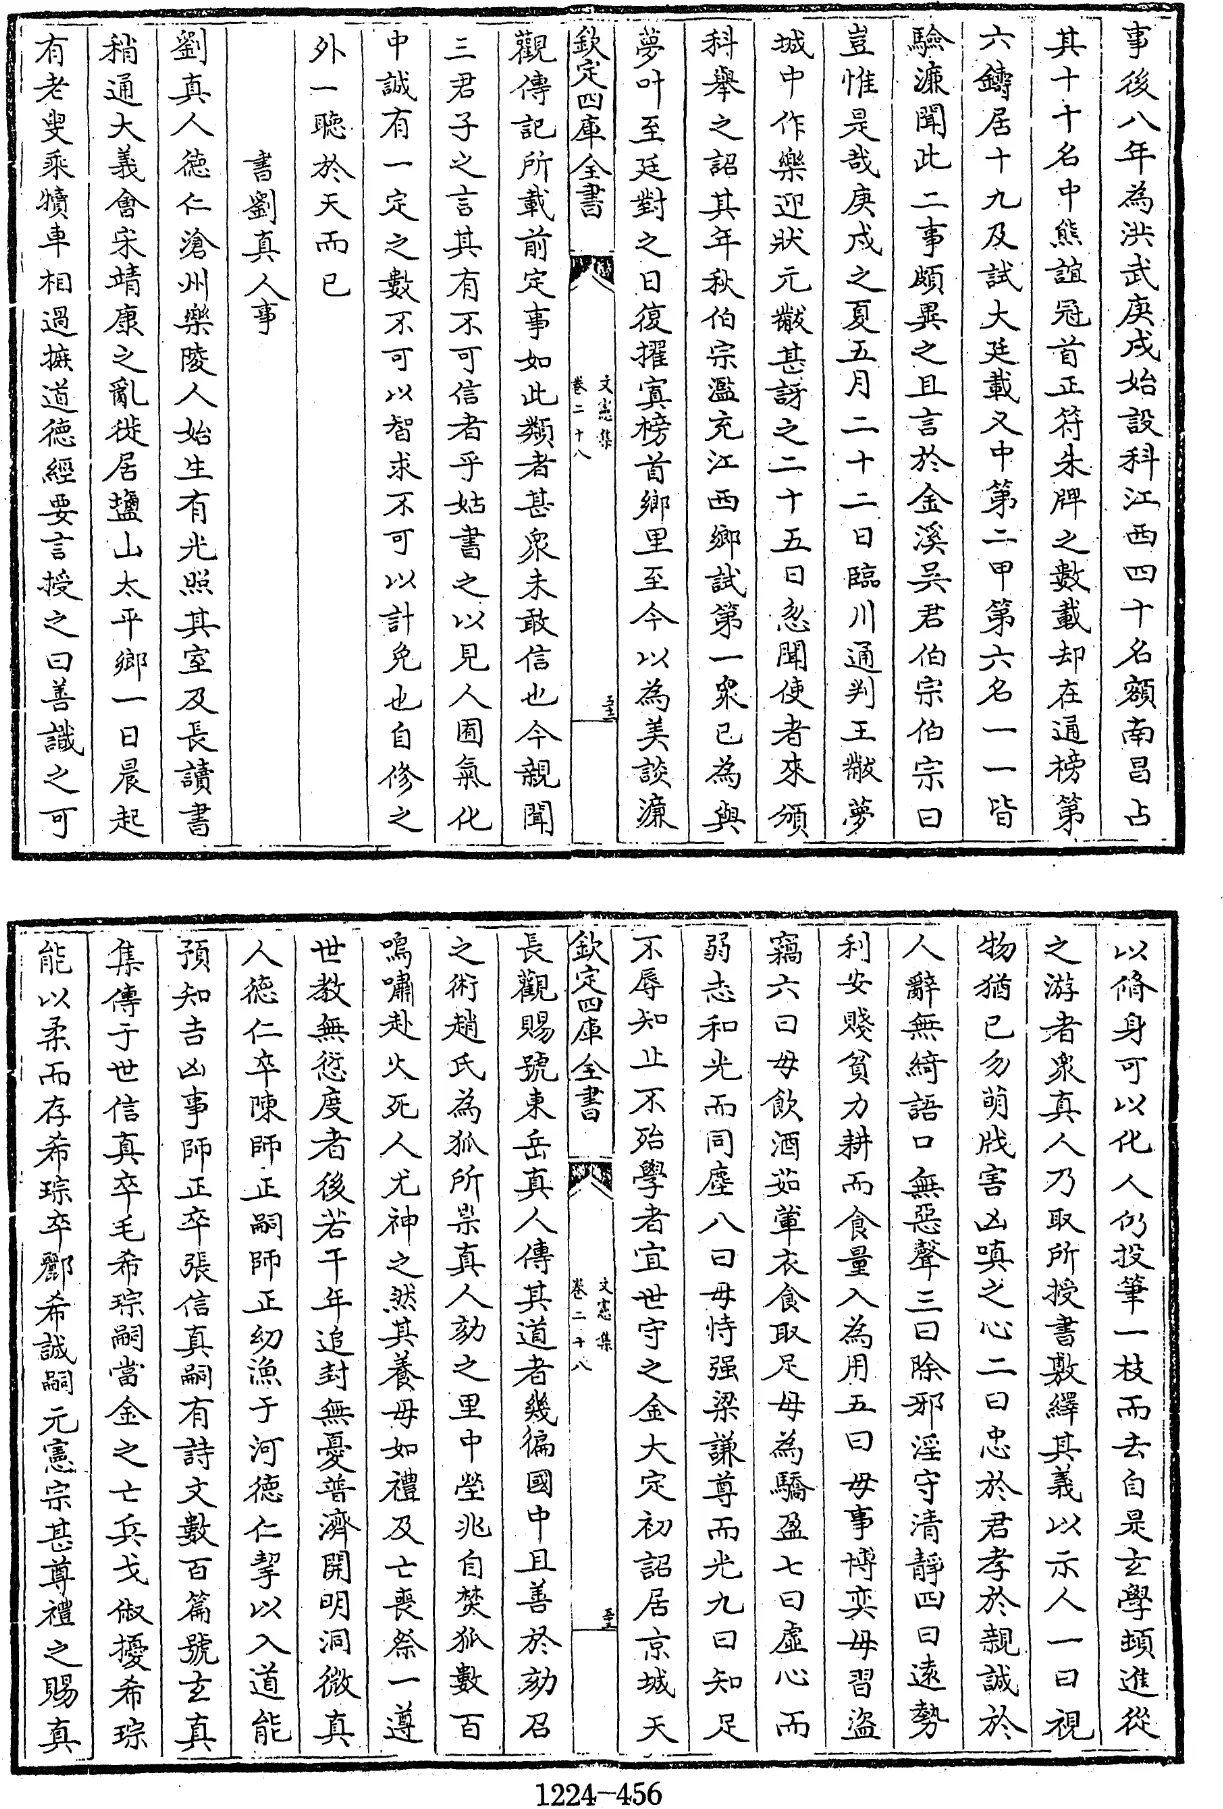 事後八年為洪武庚戌始設科江西四十名額南昌占
其十十名中熊誼冠首正符朱牌之數載却在通榜第
六鑄居十九及試大廷載又中第二甲第六名一一皆
驗濂聞此二事頗異之且言於金溪吳君伯宗伯宗曰
豈惟是哉庚戌之夏五月二十二日臨川通判王黻夢
城中作樂迎狀元黻甚訝之二十五日忽聞使者來頒
科舉之詔其年秋伯宗濫充江西鄉試第一衆已為與
夢叶至廷對之日復擢寘榜首鄉里至今以為美談濂
欽定四庫全書
文憲集
卷二十八
觀傳記所載前定事如此類者甚衆未敢信也今親聞
三君子之言其有不可信者乎姑書之以見人囿氣化
中誠有一定之數不可以智求不可以計免也自修之
外一聽於天而已
書劉真人事
劉真人德仁滄州樂陵人始生有光照其室及長讀書
稍通大義會宋靖康之亂徙居鹽山太平鄉一日晨起
有老叟乘犢車相過摭道德經要言授之曰善識之可
以脩身可以化人仍投筆一枝而去自是玄學頓進從
之游者衆真人乃取所授書敷繹其義以示人一曰視
物猶己勿萌戕害凶嗔之心二曰忠於君孝於親誠於
人辭無綺語口無惡聲三曰除邪淫守清靜四曰遠勢
利安賤貧力耕而食量入為用五曰毋事博奕毋習盜
竊六曰毋飲酒茹葷衣食取足毋為驕盈七曰虛心而
弱志和光而同塵八曰毋恃强梁謙尊而光九曰知足
不辱知止不殆學者宜世守之金大定初詔居京城天
欽定四庫全書
文憲集
卷二十八
長觀賜號東岳真人傳其道者幾徧國中且善於劾召
之術趙氏為狐所祟真人劾之里中塋兆自焚狐數百
鳴嘯赴火死人尤神之然其養母如禮及亡喪祭一遵
世教無愆度者後若干年追封無憂普濟開明洞微真
人德仁卒陳師正嗣師正幼漁于河德仁挈以入道能
預知吉凶事師正卒張信真嗣有詩文數百篇號玄真
集傳于世信真卒毛希琮嗣當金之亡兵戈俶擾希琮
能以柔而存希琮卒酈希誠嗣元憲宗甚尊禮之賜真
1224-456